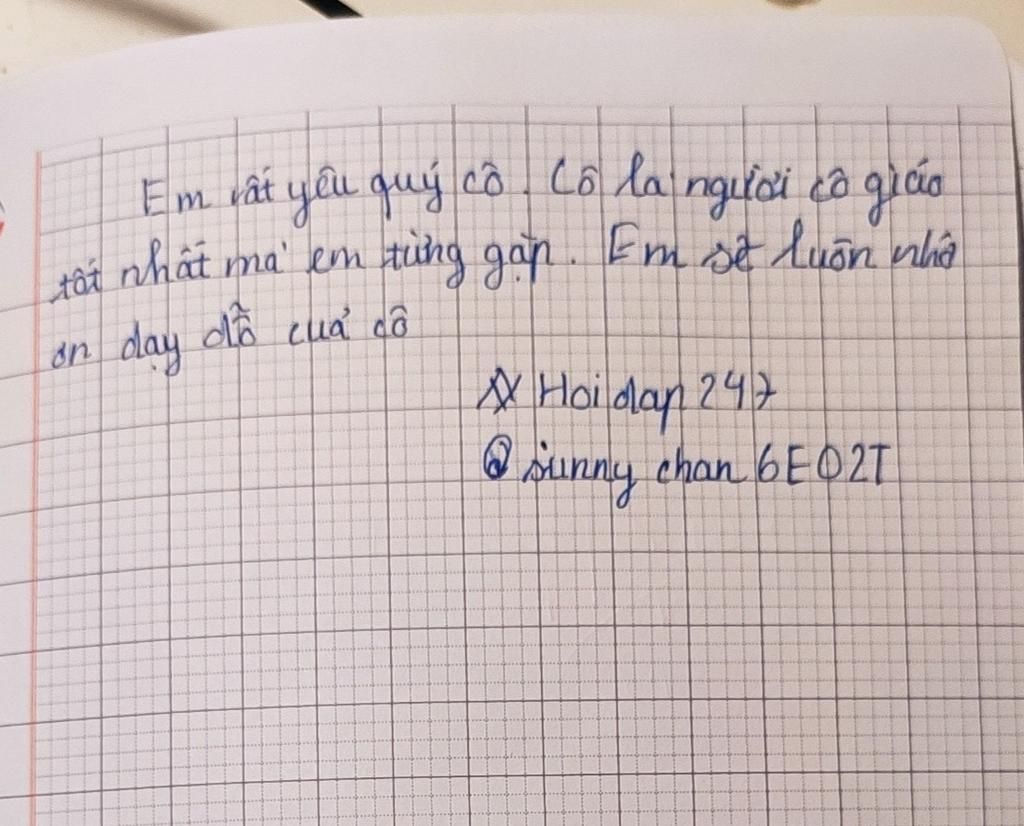 Em rất yêu quý cô. Cô là người cô giáo
tốt nhất mà em từng gặp. Em sẽ luôn nhớ
ơn dạy dỗ của cô
Hoidap247
@ sunny chan 6E02T